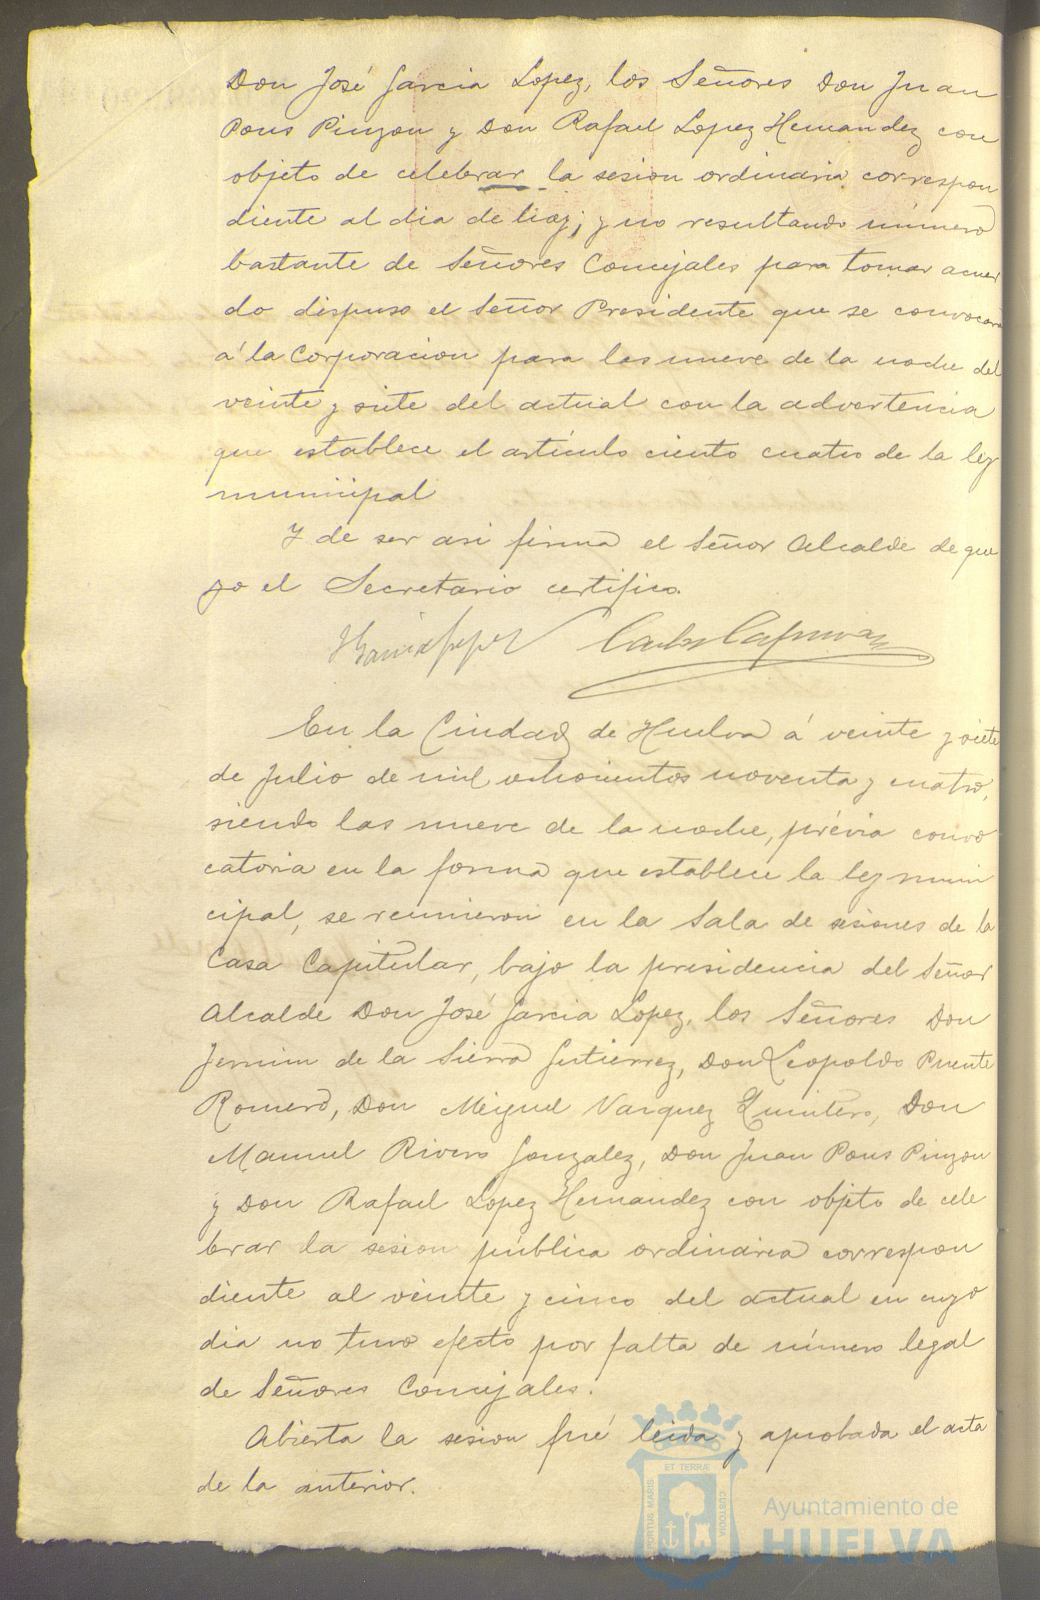 Don José Garcia Lopez, los Señores Don Juan
Pons Pinzon y Don Rafael Lopez Hernandez con
objeto de celebrar la sesion ordinaria correspon
diente al dia de hoy; y no resultando número
bastante de Señores Concejales para tomar acuer
do dispuso el Señor Presidente que se convocara
á la Corporacion para las nueve de la noche del
veinte y siete del actual con la advertencia
que establece el artículo ciento cuatro de la ley
municipal
Y de ser asi firma el Señor Alcalde de que
yo el Secretario certifico.
En la Ciudad de Huelva á veinte y siete
de Julio de mil ochocientos noventa y cuatro,
siendo las nueve de la noche, prévia convo
catoria en la forma que establece la ley muni
cipal, se reunieron en la Sala de sesiones de la
Casa Capitular, bajo la presidencia del Señor
Alcalde Don José Garcia Lopez, los Señores Don
de la Sierra Gutierrez, Don Leopoldo Puente
Romero, Don Miguel Vazquez Quintero, Don
Manuel Rivero Gonzalez, Don Juan Pons Pinzon
y Don Rafael Lopez Hernandez con objeto de cele
brar la sesion pública ordinaria correspon
diente al veinte y cinco del actual en cuyo
dia no tuvo efecto por falta de número legal
de Señores Concejales.
Abierta la sesion fué leida y aprobada el acta
de la anterior.
PORTUS MARIS ET TERRÆ CUSTODIA
Ayuntamiento de
HUELVA